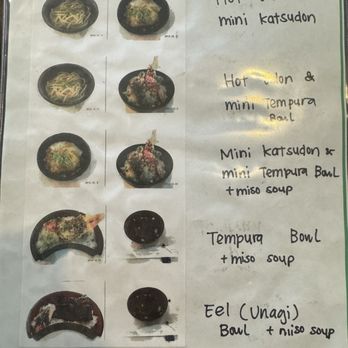 mini katsudon
Hot Udon &
mini Tempura
Bowl
Mini Katsudon &
mini Tempura Bowl
+ miso soup
Tempura Bowl
+ miso soup
Eel (Unagi)
Bowl + miso soup